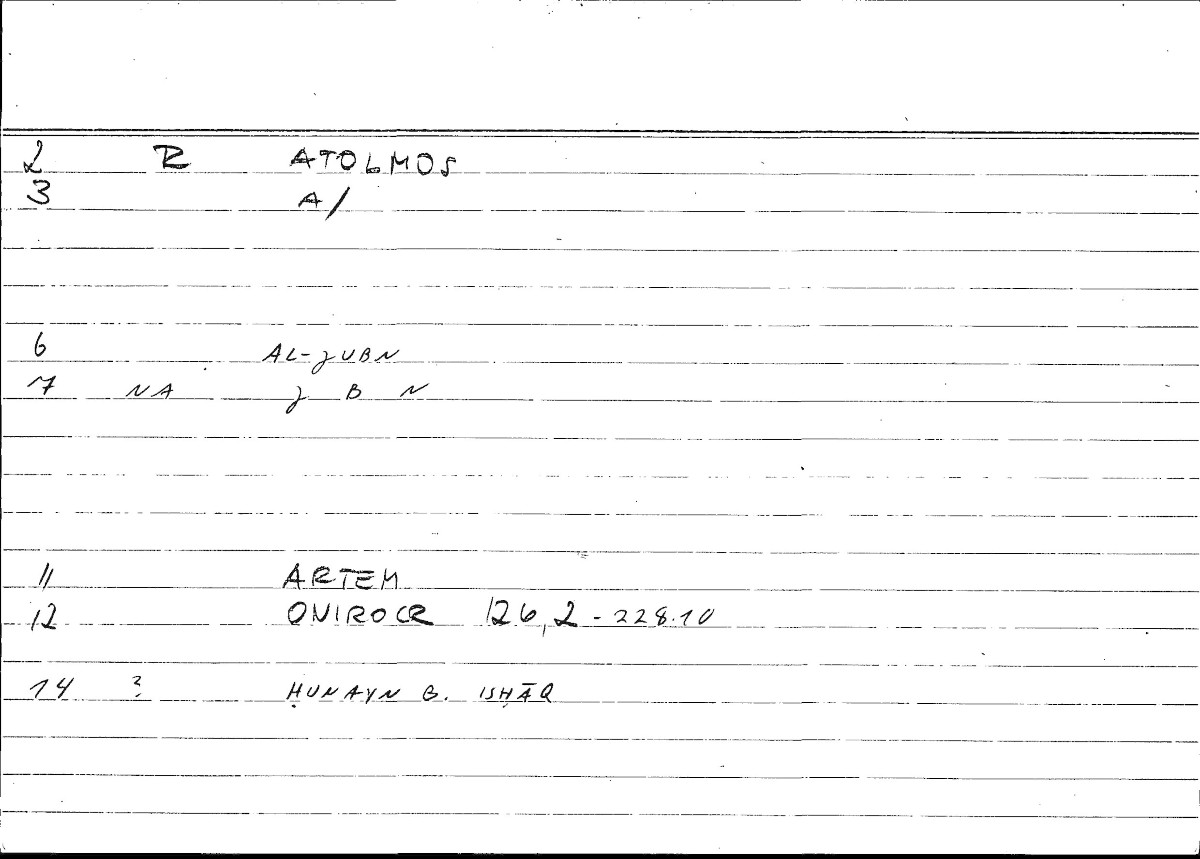 2 R ATOLMOS
3 A/
6 AL-JUBN
7 NA J B N
11 ARTEM
12 ONIROCR 126,2-228.10
14 ? ḤUNAYN B. ISḤĀQ